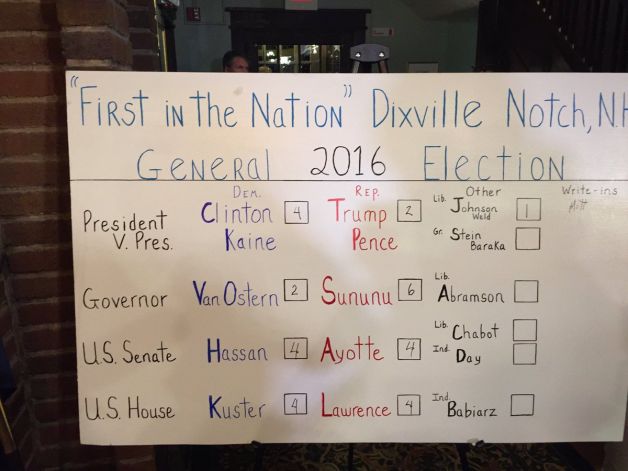 "First in the Nation" Dixville Notch, N.H
General 2016 Election
Dem. Rep. Other Write-ins
President Clinton 4 Trump 2 Lib. Johnson 1
Weld
V. Pres. Kaine Pence Gr. Stein
Baraka
Governor Van Ostern 2 Sununu 6 Lib. Abramson
Lib. Chabot
U.S. Senate Hassan 4 Ayotte 4 Ind. Day
U.S. House Kuster 4 Lawrence 4 Ind. Babiarz